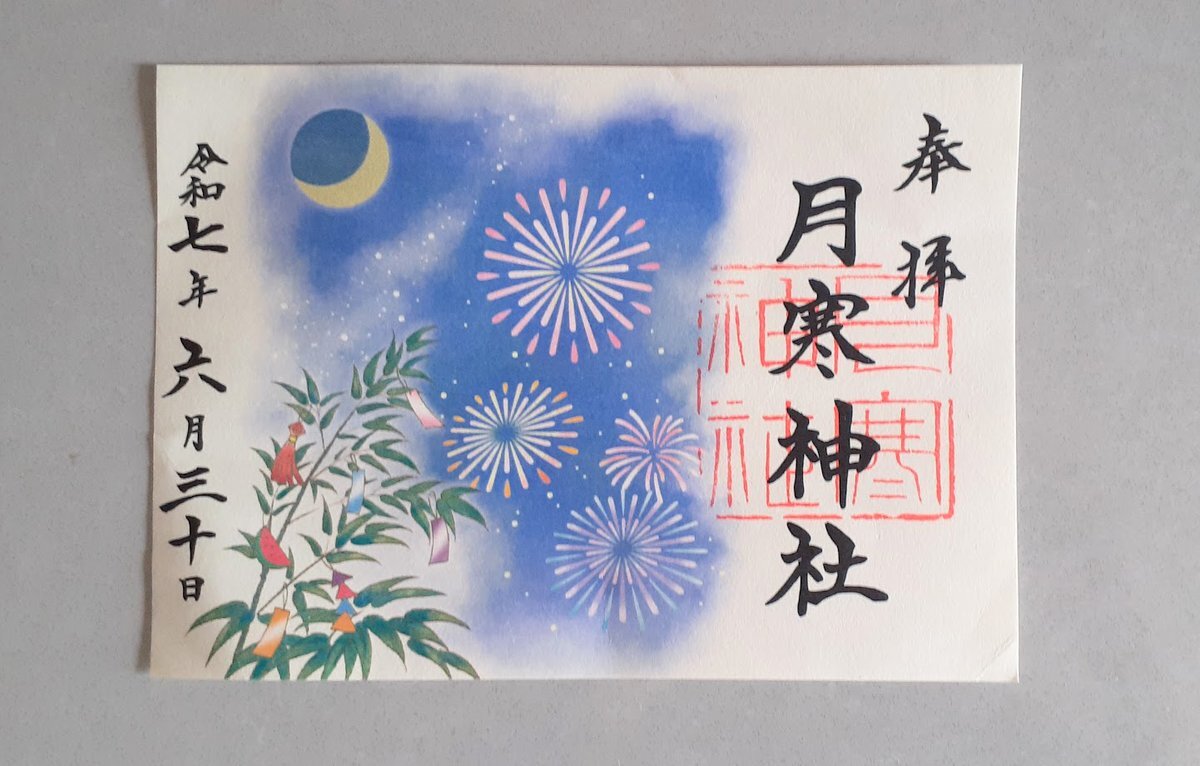 奉拝
月寒神社
月寒
神社
令和七年六月三十日